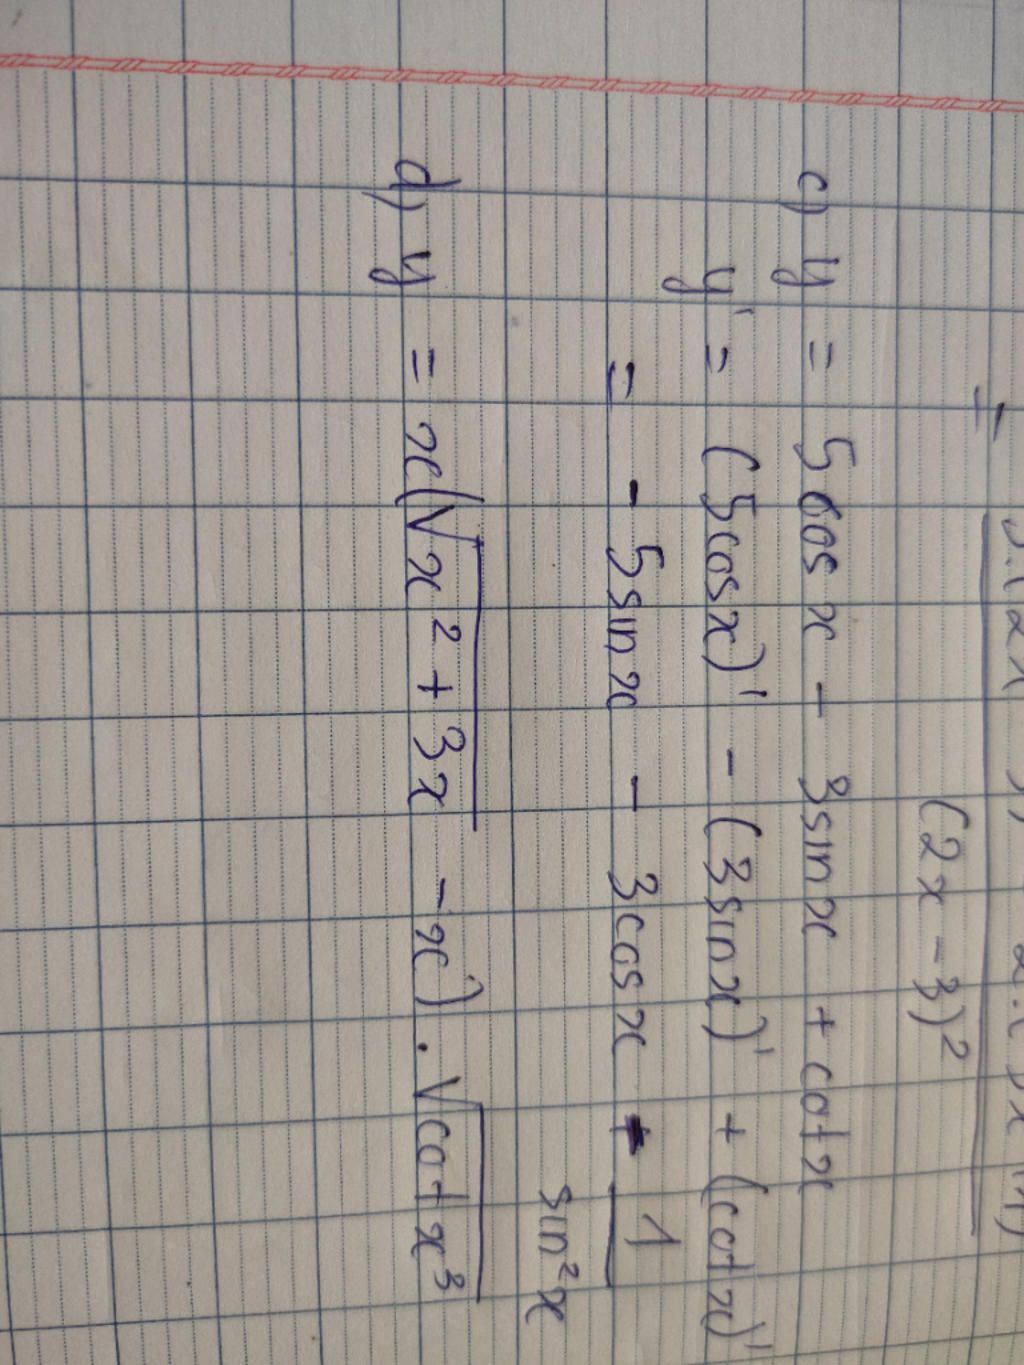 =
(2x - 3)²
c) y = 5cos x - 3sin x + cot x
y' = (5cos x)' - (3sin x)' + (cot x)'
= - 5sin x - 3cos x - 1/sin²x
d) y = x(√(x² + 3x) - x) . √(cot x³)